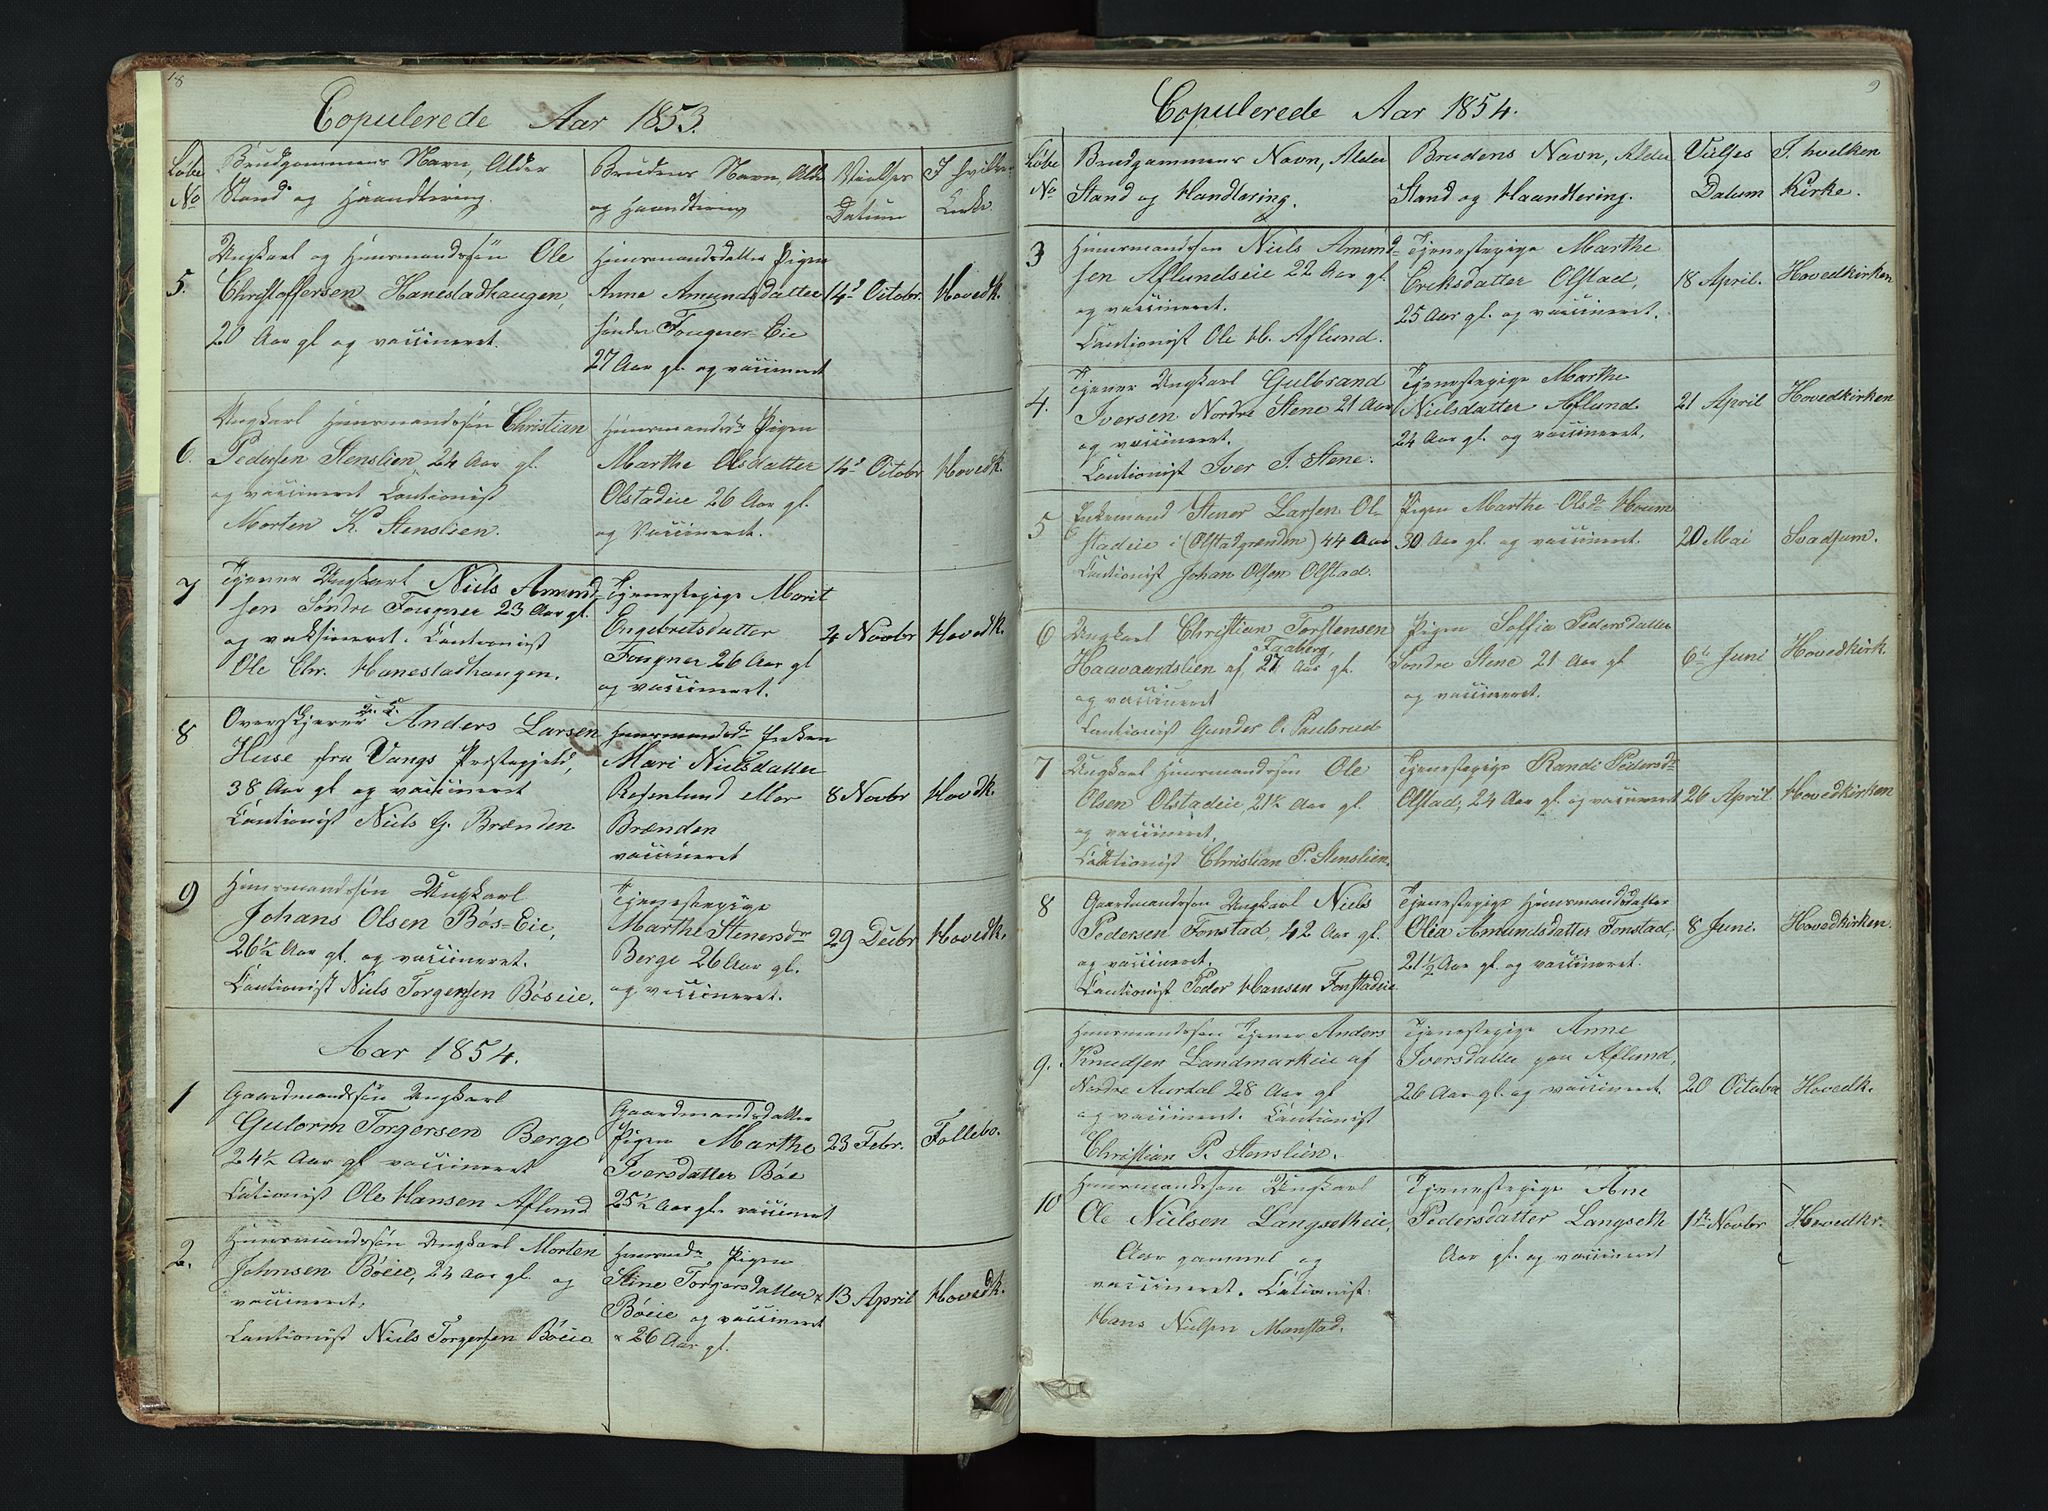 18
Copulerede Aar 1853.
Løbe No
Brudgommens Navn, Alder
Stand og Haandtering.
Brudens Navn, Alde
og Haandtering
Vielses
Datum
I hvilken
Kirke.
5.
Ungkarl og Huusmandssøn Ole
Christoffersen Hanestadhaugen,
20 Aar gl og vaccineret.
Huusmandsdatter Pigen
Anne Amundsdatter
søndre Fougner-Eie
27 Aar gl. og vaccineret
14d Octobr.
Hovedk.
6.
Ungkarl Huusmandssøn Christian
Pedersen Stenslien, 24 Aar gl.
og vaccineret Cautionist
Morten K. Stenslien.
Huusmandsdr Pigen
Marthe Olsdatter
Olstadeie 26 Aar gl.
og Vaccineret.
14d Octobr
Hovedk.
7
Tjener Ungkarl Niels Amund-
sen Søndre Fougner 23 Aar gl.
og vaksineret. Cautionist
Ole Chr. Hanestadhaugen.
Tjenestepige Marit
Engebretsdatter
Fougner 26 Aar gl
og vaccineret.
4 Novbr
Hovedk.
8
Overskjærer Anders Larsen
Huse fra Vangs Præstegjeld,
38 Aar gl og vaccineret
Cautionist Niels G. Brænden
Huusmandsdr Enken
Mari Nielsdatter
Rosenlund eller
Brænden
vaccineret
8 Novbr
Hovedk.
9
Huusmandssøn Ungkarl
Johans Olsen Bøs-Eie,
26½ Aar gl. og vaccineret.
Cautionist Niels Torgersen Bøseie.
Tjenestepige
Marthe Stenersdr
Berge 26 Aar gl.
og vaccineret.
29 Decbr
Hovedk.
Aar 1854.
1
Gaardmandssøn Ungkarl
Gulorm Torgersen Berge
24½ Aar gl vaccineret
Cationist Ole Hansen Aflund
Gaardmandsdatter
Pigen Marthe
Iversdatter Bøe
25½ Aar gl. vaccineret
23 Febr.
Follebo.
2.
Huusmandssøn Ungkarl Morten
Johnsen Bøeie, 24 Aar gl. og
vaccineret.
Cautionist Niels Torgersen Bøeie
Huusmdr Pigen
Stine Torgersdatter
Bøeie og vaccineret
26 Aar gl.
13 April
Hovedk.
9
Copulerede Aar 1854.
Løbe No
Brudgommens Navn, Alder
Stand og Handtering.
Brudens Navn, Alder
Stand og Haandtering.
Vielses
Datum
I hvilken
Kirke.
3
Huusmandssøn Niels Amund-
sen Aflundseie 22 Aar gl.
og vaccineret.
Cautionist Ole H. Aflund.
Tjenestepige Marthe
Eriksdatter Olstad,
25 Aar gl. og vaccineret.
18 April.
Hovedkirken
4.
Tjener Ungkarl Gulbrand
Iversen Nordre Stene 21 Aar
og vaccineret.
Cautionist Iver I. Stene.
Tjenestepige Marthe
Nielsdatter Aflund.
24 Aar gl. og vaccineret,
21 April
Hovedkirken
5
Enkemand Stener Larsen Ol-
stadeie i (Olstadgrænden) 44 Aar
Cautionist Johan Olsen Olstad.
Pigen Marthe Olsdr Houm
30 Aar gl. og vaccineret.
20 Mai
Svadsum.
6
Ungkarl Christian Torstensen
Haavaardslien af Faaberg, 27 Aar gl.
og vaccineret
Cautionist Gunder O. Paulsrud
Pigen Soffia Pedersdatter
Søndre Stene 21 Aar gl
og vaccineret.
6te Juni
Hovedkirk.
7
Ungkarl Huusmandssøn Ole
Olsen Olstadeie, 21½ Aar gl.
og vaccineret,
Cautionist Christian P. Stenslien.
Tjenestepige Randi Pedersdr
Olstad, 24 Aar gl. og vaccineret
26 April
Hovedkirken
8
Gaardmandssøn Ungkarl Niels
Pedersen Fonstad, 42 Aar gl.
og vaccineret.
Cautionist Peder Hansen Fonstadeie
Tjenestepige Huusmandsdatter
Olea Amundsdatter Fonstad,
21½ Aar gl. og vaccineret.
8 Juni.
Hovedkirken.
9.
Huusmandssøn Tjener Anders
Knudsen Landmarkeie af
Nordre Aurdal 28 Aar gl
og vaccineret. Cautionist
Christian P. Stenslien.
Tjenestepige Anne
Iversdatter paa Aflund,
26 Aar gl. og vaccineret.
20 Octobr
Hovedk.
10
Huusmandssøn Ungkarl
Ole Nielsen Langsetheie,
Aar gammel og
vaccineret. Cationist
Hans Nielsen Manstad.
Tjenestepige Ane
Pedersdatter Langseth
Aar gl. og vaccineret
1te Novbr
Hovedkr.